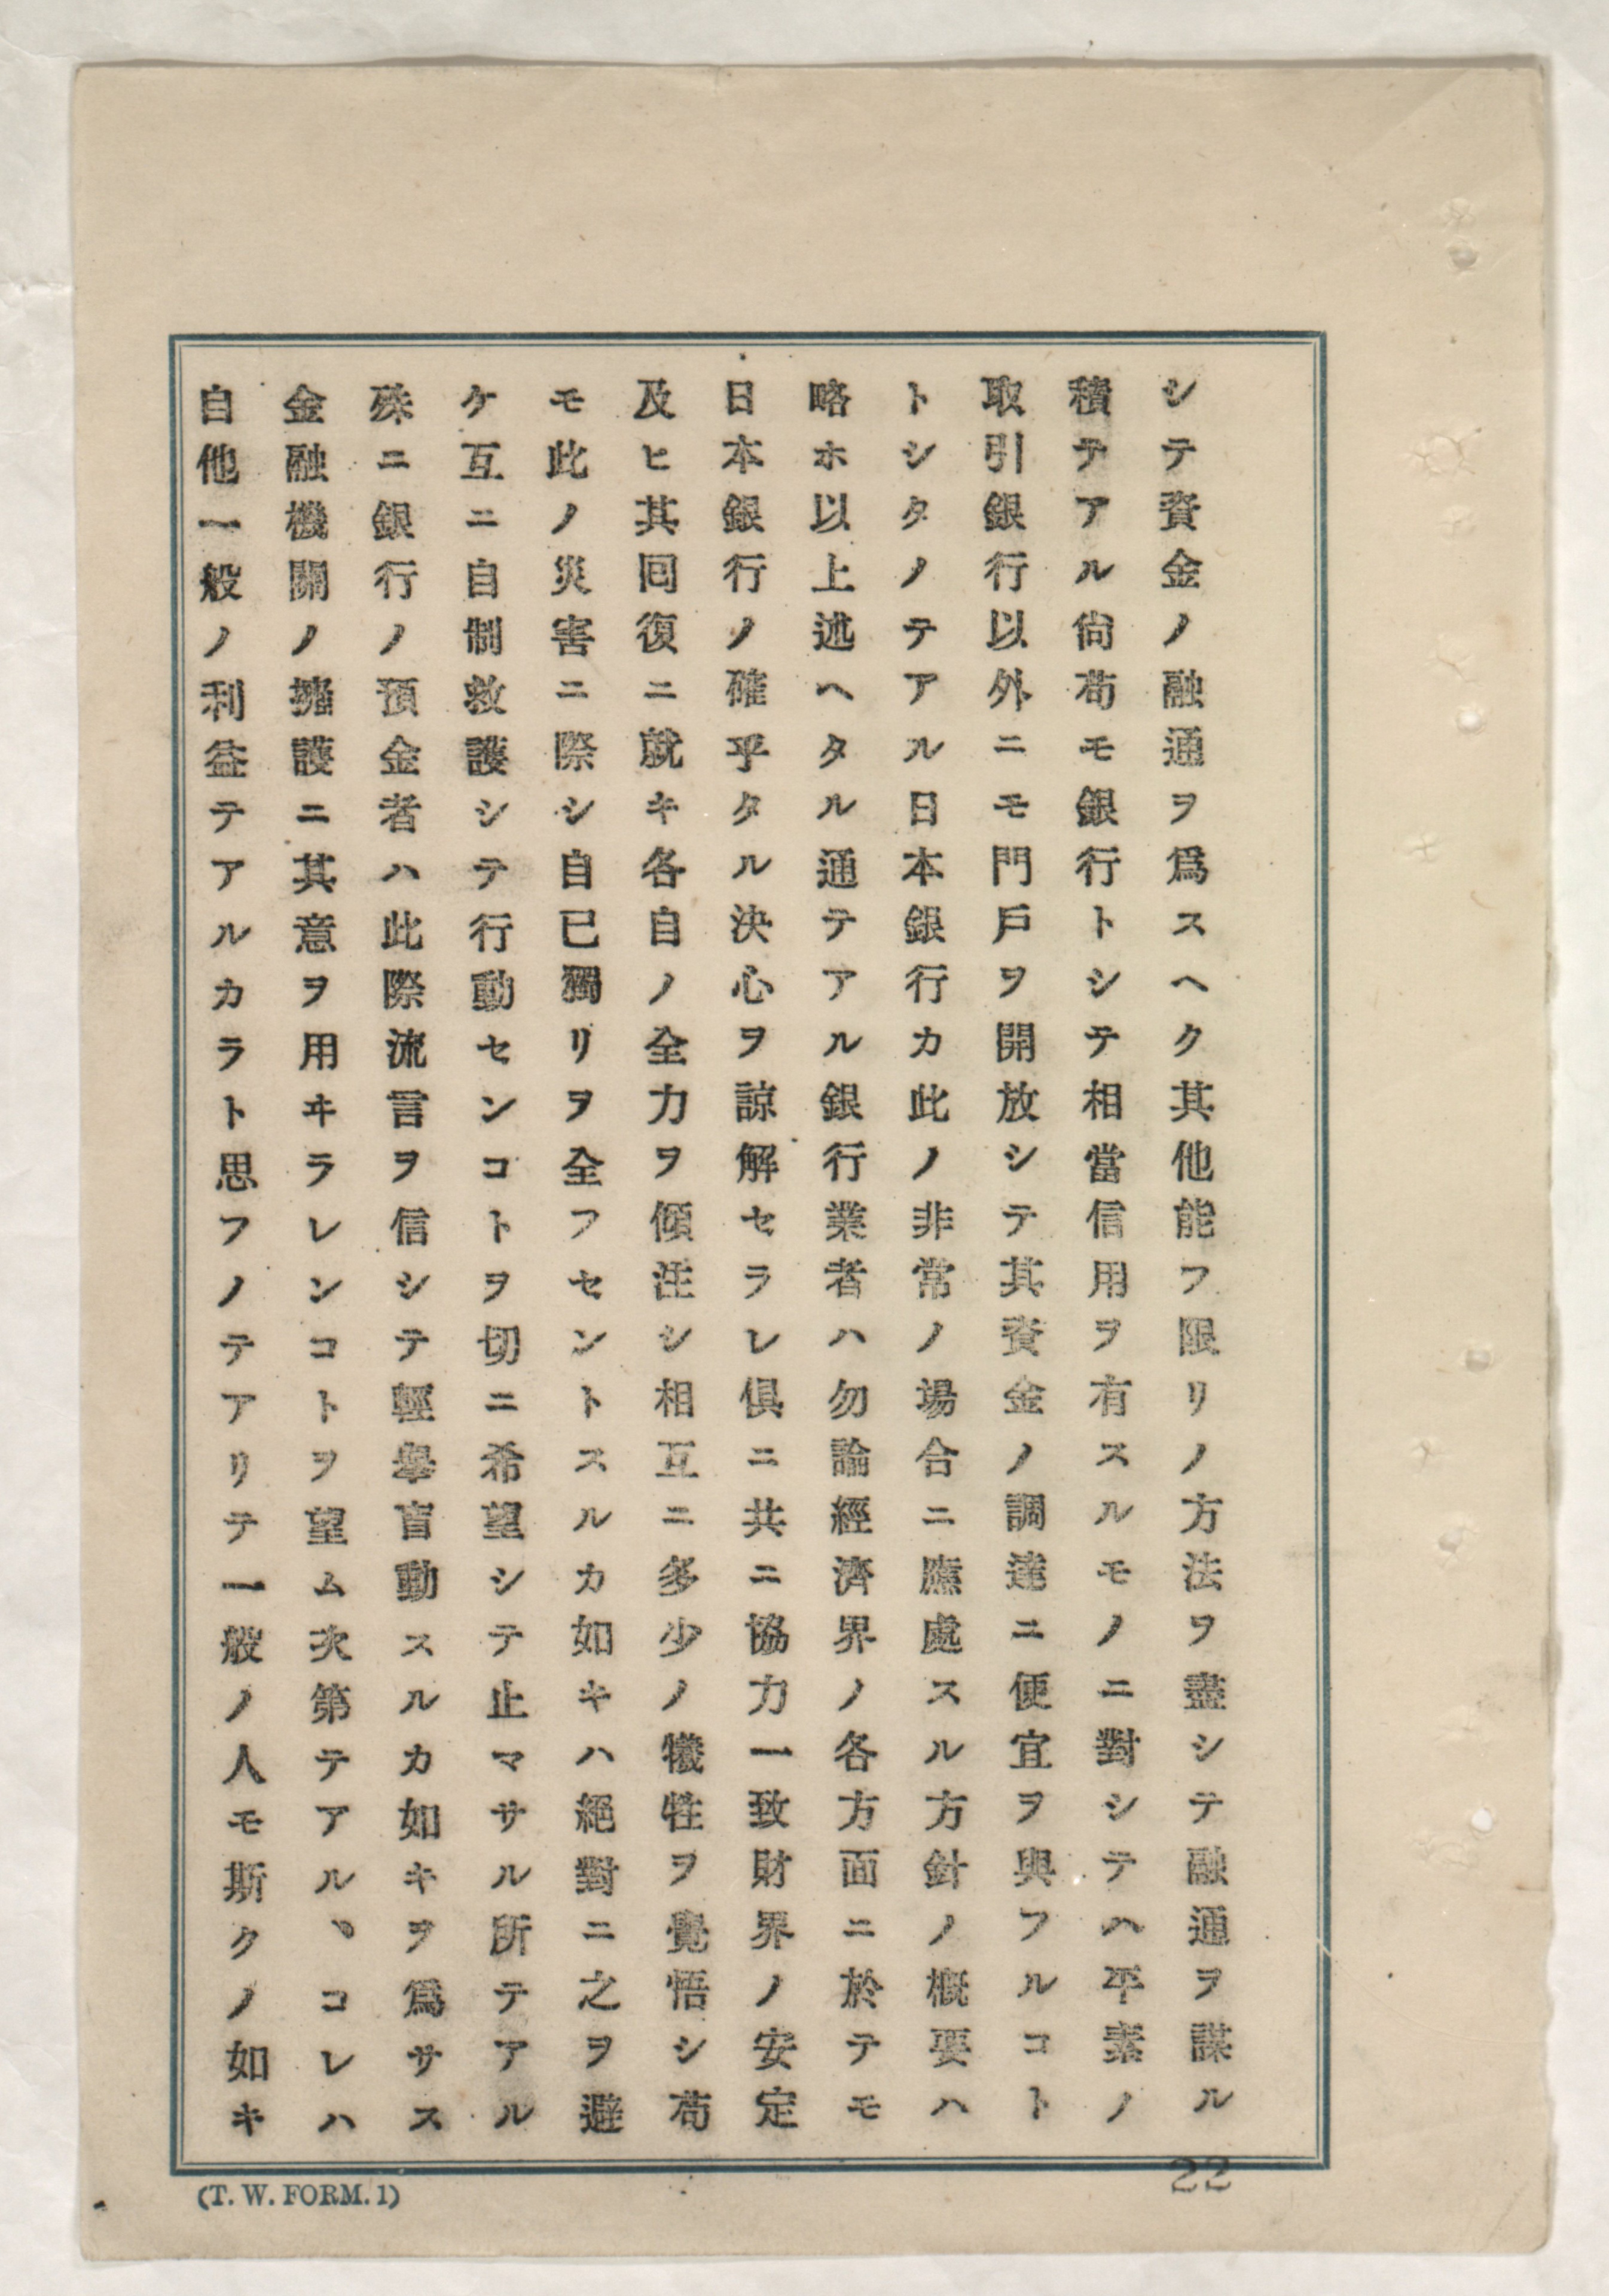 シテ資金ノ融通ヲ爲スヘク其他能フ限リノ方法ヲ盡シテ融通ヲ謀ル
積テアル尙苟モ銀行トシテ相當信用ヲ有スルモノニ對シテハ平素ノ
取引銀行以外ニモ門戶ヲ開放シテ其資金ノ調達ニ便宜ヲ與フルコト
トシタノテアル日本銀行カ此ノ非常ノ場合ニ應處スル方針ノ槪要ハ
略ホ以上述ヘタル通テアル銀行業者ハ勿論經濟界ノ各方面ニ於テモ
日本銀行ノ確乎タル決心ヲ諒解セラレ俱ニ共ニ協力一致財界ノ安定
及ヒ其囘復ニ就キ各自ノ全力ヲ傾注シ相互ニ多少ノ犧牲ヲ覺悟シ苟
モ此ノ災害ニ際シ自已獨リヲ全フセントスルカ如キハ絕對ニ之ヲ避
ケ互ニ自制救護シテ行動センコトヲ切ニ希望シテ止マサル所テアル
殊ニ銀行ノ預金者ハ此際流言ヲ信シテ輕擧盲動スルカ如キヲ爲サス
金融機關ノ擁護ニ其意ヲ用ヰラレンコトヲ望ム次第テアル、コレハ
自他一般ノ利益テアルカラト思フノテアリテ一般ノ人モ斯クノ如キ
22
(T. W. FORM. 1)